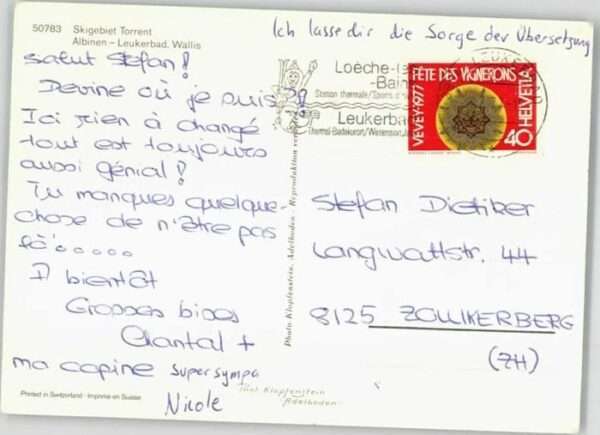 50783 Skigebiet Torrent
Albinen – Leukerbad, Wallis
Ich lasse dir die Sorge der Übersetzung
Salut Stefan!
Devine où je suis?!
Ici rien à changé
tout est toujours
aussi génial!
Tu manques quelque-
chose de n'être pas
là.....
A bientôt
Grosses bises
Chantal +
ma copine super sympa
Nicole
Printed in Switzerland - Imprimé en Suisse
Photo Klopfenstein, Adelboden - Reproduktion
Foto Klopfenstein
Adelboden
Loèche-
-Bain
Station thermale/Sports
Leukerba
Thermal-Badekurort/Wintersport
FÊTE DES VIGNERONS
VEVEY·1977
HELVETIA
40
Stefan Dietiker
Langwattstr. 44
8125 ZOLLIKERBERG
(ZH)